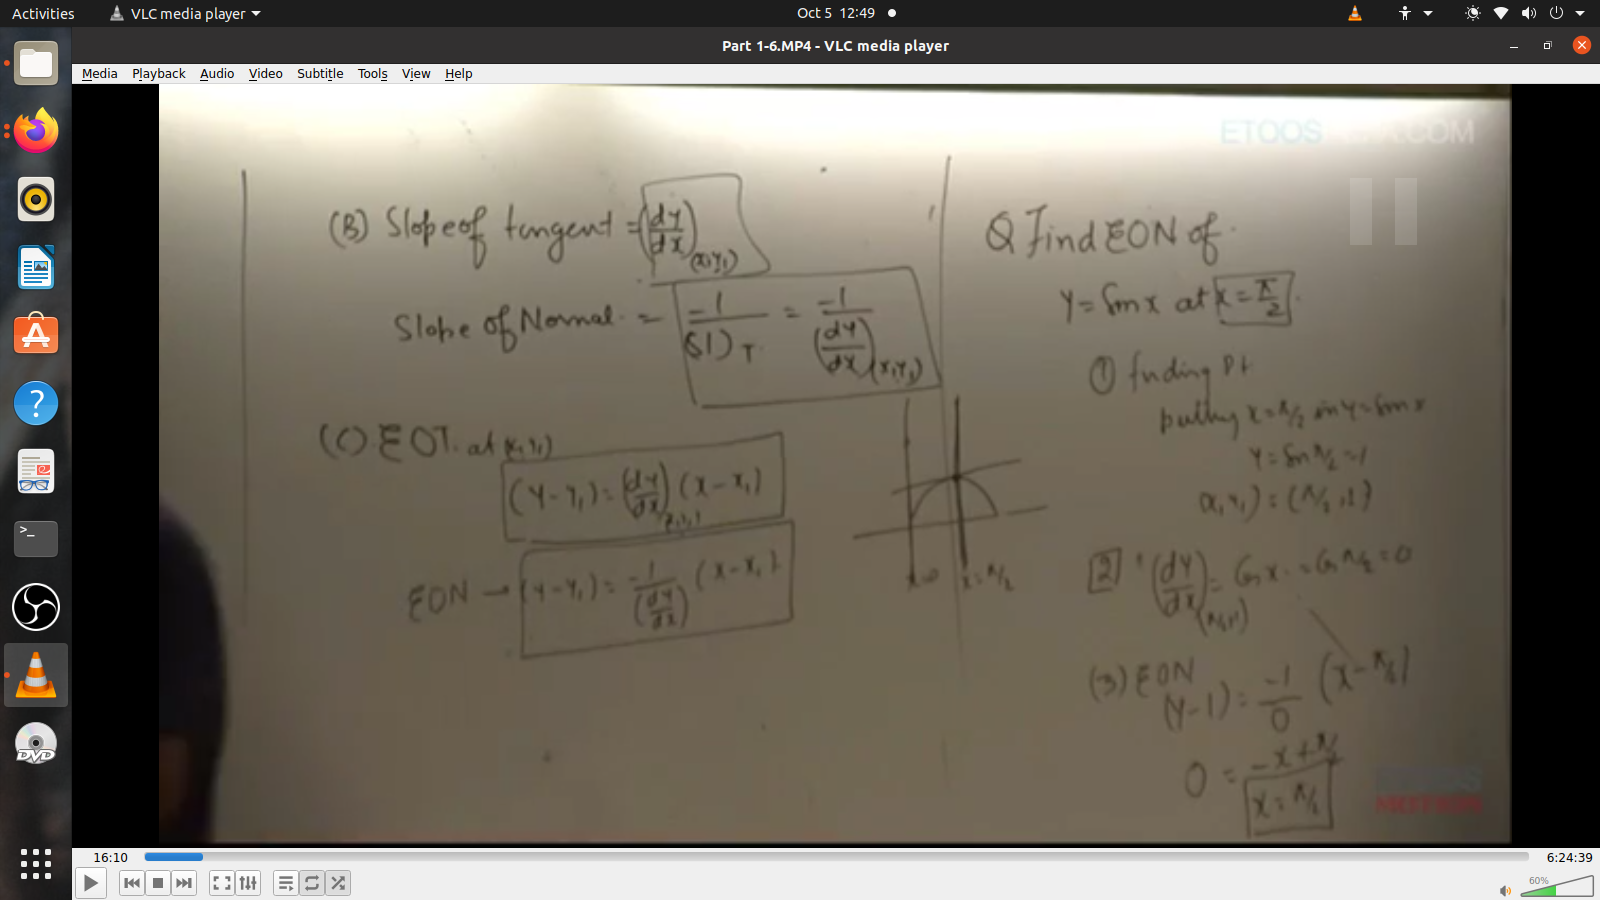 Activities
VLC media player
Oct 5 12:49
Part 1-6.MP4 - VLC media player
Media Playback Audio Video Subtitle Tools View Help
ETOOS .COM
(B) Slope of tangent = (dy/dx)(x₁y₁)
Slope of Normal = -1/(Sl)T = -1/(dy/dx)(x₁,y₁)
(C) EOT at (x₁,y₁)
(y-y₁) = (dy/dx)x₁,y₁ (x-x₁)
EON → (y-y₁) = -1/(dy/dx) (x-x₁)
x=0 x=π/2
Q Find EON of
y = Sin x at x = π/2
① finding Pt
putting x=π/2 in y=Sin x
y = Sin π/2 = 1
(x₁,y₁) = (π/2, 1)
2 (dy/dx)(π/2,1) = Cos x = Cos π/2 = 0
(3) EON
(y-1) = -1/0 (x-π/2)
0 = -x+π/2
x = π/2
16:10
6:24:39
60%
>_
?
DVD